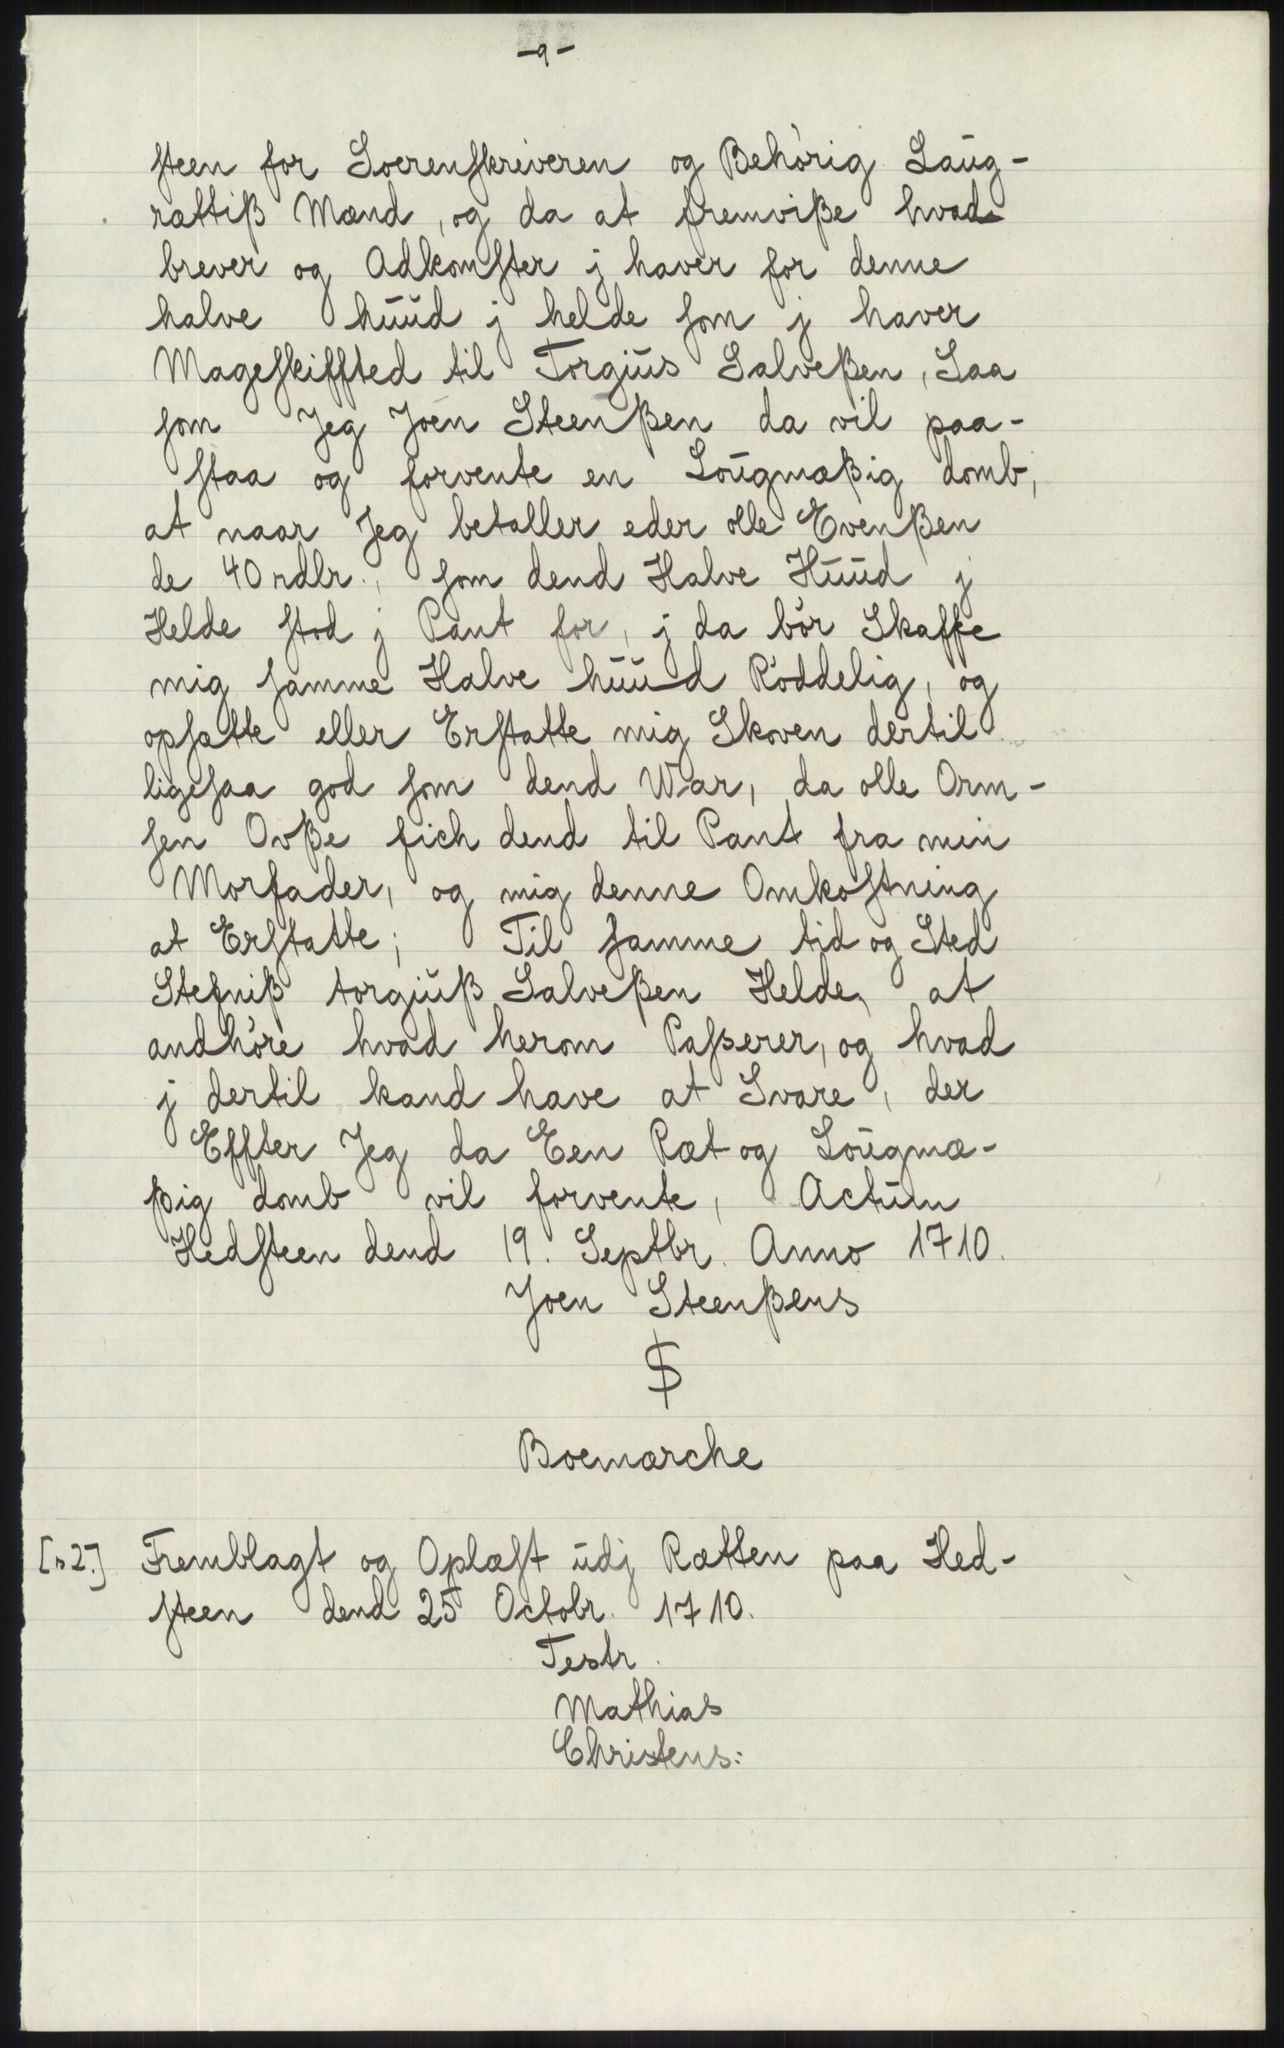 -9-
steen for Soerenskriveren og Behörig Laug-
rættiß Mænd, og da at fremviße hvad
brever og Adkomster j haver for denne
halve huud j helde som j haver
Mageskiffted til Torgius Salveßen, Saa
som Jeg Joen Steenßen da vil paa-
staa og forvente en Lougmæßig domb,
at naar Jeg betaller eder olle Evenßen
de 40 rdlr., som dend Halve Huud j
Helde stod j Pant for, j da bör Skaffe
mig samme Halve huud Röddelig, og
opsætte eller Erstatte mig Skoven dertil
ligesaa god som dend War, da olle Orm-
sen Ovße fich dend til Pant fra min
Morfader, og mig denne Omkostning
at Erstatte; Til samme tid og Sted
Stefniß torgiuß Salveßen Helde, at
andhöre hvad herom Passerer, og hvad
j dertil kand have at Svare, der
Effter Jeg da Een Ræt og Lougmæ-
ßig domb vil forvente, Actum
Hedsteen dend 19. Septbr. Anno 1710.
Joen Steenßens
$
Boemærche
[s 2.] Fremblagt og Oplæst udj Rætten paa Hed-
steen dend 25 Octobr. 1710.
Testr.
Mathias
Christens: